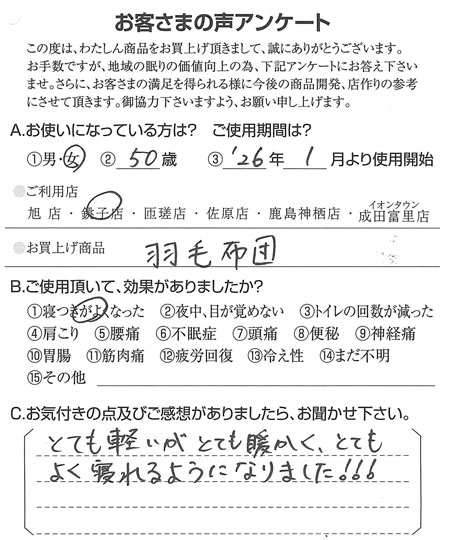 お客さまの声アンケート
この度は、わたしん商品をお買上げ頂きまして、誠にありがとうございます。
お手数ですが、地域の眠りの価値向上の為、下記アンケートにお答え下さい
ませ。さらに、お客さまの満足を得られる様に今後の商品開発、店作りの参考
にさせて頂きます。御協力下さいますよう、お願い申し上げます。
A.お使いになっている方は? ご使用期間は?
①男・女 ② 50 歳 ③ '26 年 1 月より使用開始
ご利用店
旭 店・銚子店・匝瑳店・佐原店・鹿島神栖店・イオンタウン成田富里店
お買上げ商品 羽毛布団
B.ご使用頂いて、効果がありましたか?
①寝つきがよくなった ②夜中、目が覚めない ③トイレの回数が減った
④肩こり ⑤腰痛 ⑥不眠症 ⑦頭痛 ⑧便秘 ⑨神経痛
⑩胃腸 ⑪筋肉痛 ⑫疲労回復 ⑬冷え性 ⑭まだ不明
⑮その他
C.お気付きの点及びご感想がありましたら、お聞かせ下さい。
とても軽いがとても暖かく、とても
よく寝れるようになりました!!!